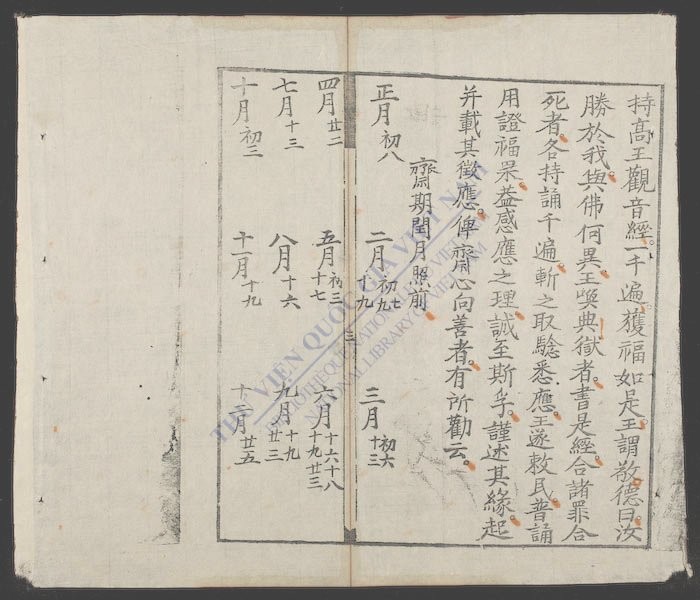 持髙王觀音經。一千遍獲福如是。王謂敬德曰汝
勝於我。與佛何異。王喚典獄者。書是經。令諸罪合
死者。各持誦千遍。斬之取驗悉應。王遂敕民普誦
用證福果。益感應之理。誠至斯乎。謹述其緣起
并載其徵應。俾齋心向善者。有所勸云。
齋期閏月照前
正月初八
二月初七初九十九
三月初六十三
三
四月廿二
五月初三十七
六月十六十八十九廿三
七月十三
八月十六
九月十九廿三
十月初二
十一月十九
十二月廿五
THƯ VIỆN QUỐC GIA VIỆT NAM
BIBLIOTHÈQUE NATIONALE DU VIETNAM
NATIONAL LIBRARY OF VIETNAM